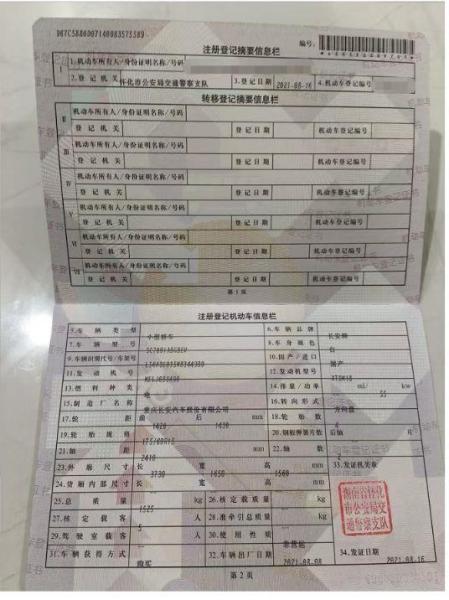 注册登记摘要信息栏
编号:
Ⅰ 1.机动车所有人/身份证明名称/号码
2.登记机关 怀化市公安局交通警察支队 3.登记日期 2021-08-16 4.机动车登记编号
转移登记摘要信息栏
Ⅱ 机动车所有人/身份证明名称/号码
登记机关 登记日期 机动车登记编号
Ⅲ 机动车所有人/身份证明名称/号码
登记机关 登记日期 机动车登记编号
Ⅳ 机动车所有人/身份证明名称/号码
登记机关 登记日期 机动车登记编号
Ⅴ 机动车所有人/身份证明名称/号码
登记机关 登记日期 机动车登记编号
Ⅵ 机动车所有人/身份证明名称/号码
登记机关 登记日期 机动车登记编号
Ⅶ 机动车所有人/身份证明名称/号码
登记机关 登记日期 机动车登记编号
第1页
注册登记机动车信息栏
5.车辆类型 小型轿车 6.车辆品牌 长安牌
7.车辆型号 8.车身颜色 白
9.车辆识别代号/车架号 10.国产/进口 国产
11.发动机号 12.发动机型号
13.燃料种类 电 14.排量/功率 ml/ 55 kw
15.制造厂名称 重庆长安汽车股份有限公司 16.转向形式 方向盘
17.轮距 前 1420 后 1430 mm 18.轮胎数 4
19.轮胎规格 20.钢板弹簧片数 后轴 片
21.轴距 2410 mm 22.轴数 2
23.外廓尺寸 长 3730 宽 1650 高 1560 mm 33.发证机关章
24.货厢内部尺寸 长 宽 高 mm
25.总质量 kg 26.核定载质量 kg
27.核定载客 5 人 28.准牵引总质量 kg
29.驾驶室载客 人 30.使用性质 非营运
31.车辆获得方式 购买 32.车辆出厂日期 2021-08-08 34.发证日期 2021-08-16
湖南省怀化
市公安局交
通警察支队
第2页